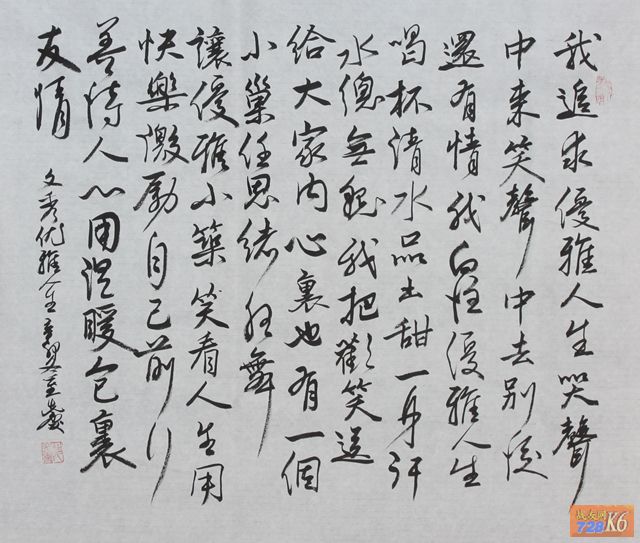 我追求優雅人生哭聲
中来笑聲中去別後
還有情我優雅人生
喝杯清水品出甜一身汗
水總無我把歡笑送
給大家内心裏也有一個
小巢任思緒狂舞
讓優雅小築笑看人生用
快樂激勵自己前行
善待人心用温暖包裹
友情
文秀优雅人生
战友网
728K6